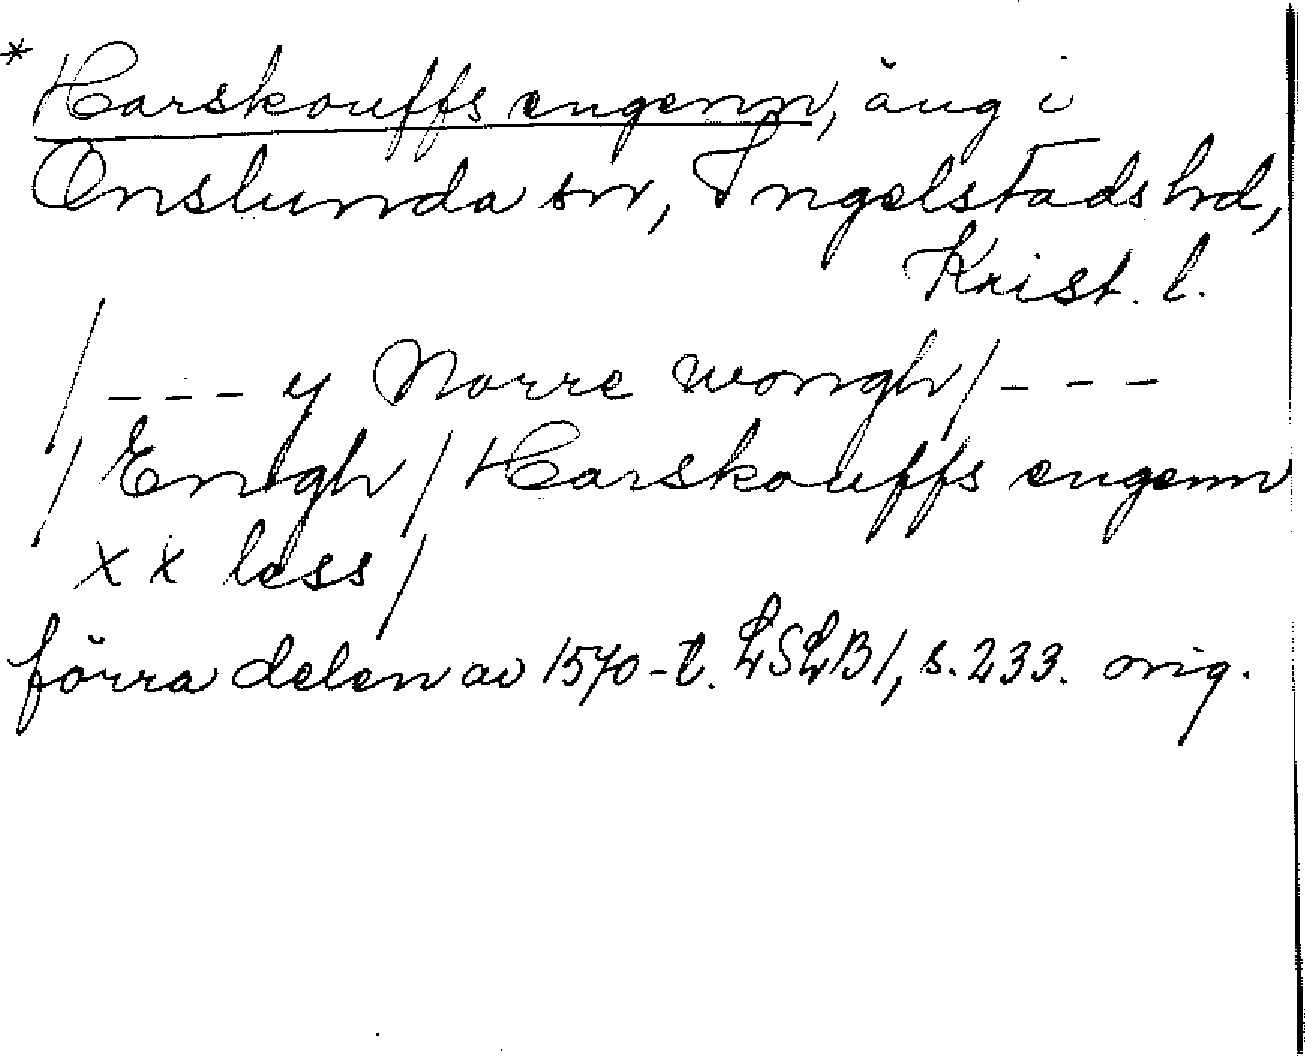 * Harskouffs engenn, äng i
Onslunda sn, Ingelstads hd,
Krist. l.
/ - - - y Norre wongh / - - -
/ Engh / Harskouffs engenn
x x less /
förra delen av 1570-t. LSLB 1, s. 233. orig.